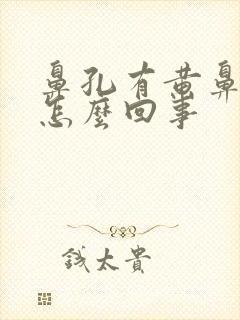 鼻孔有黄鼻
怎麼回事
錢太貴